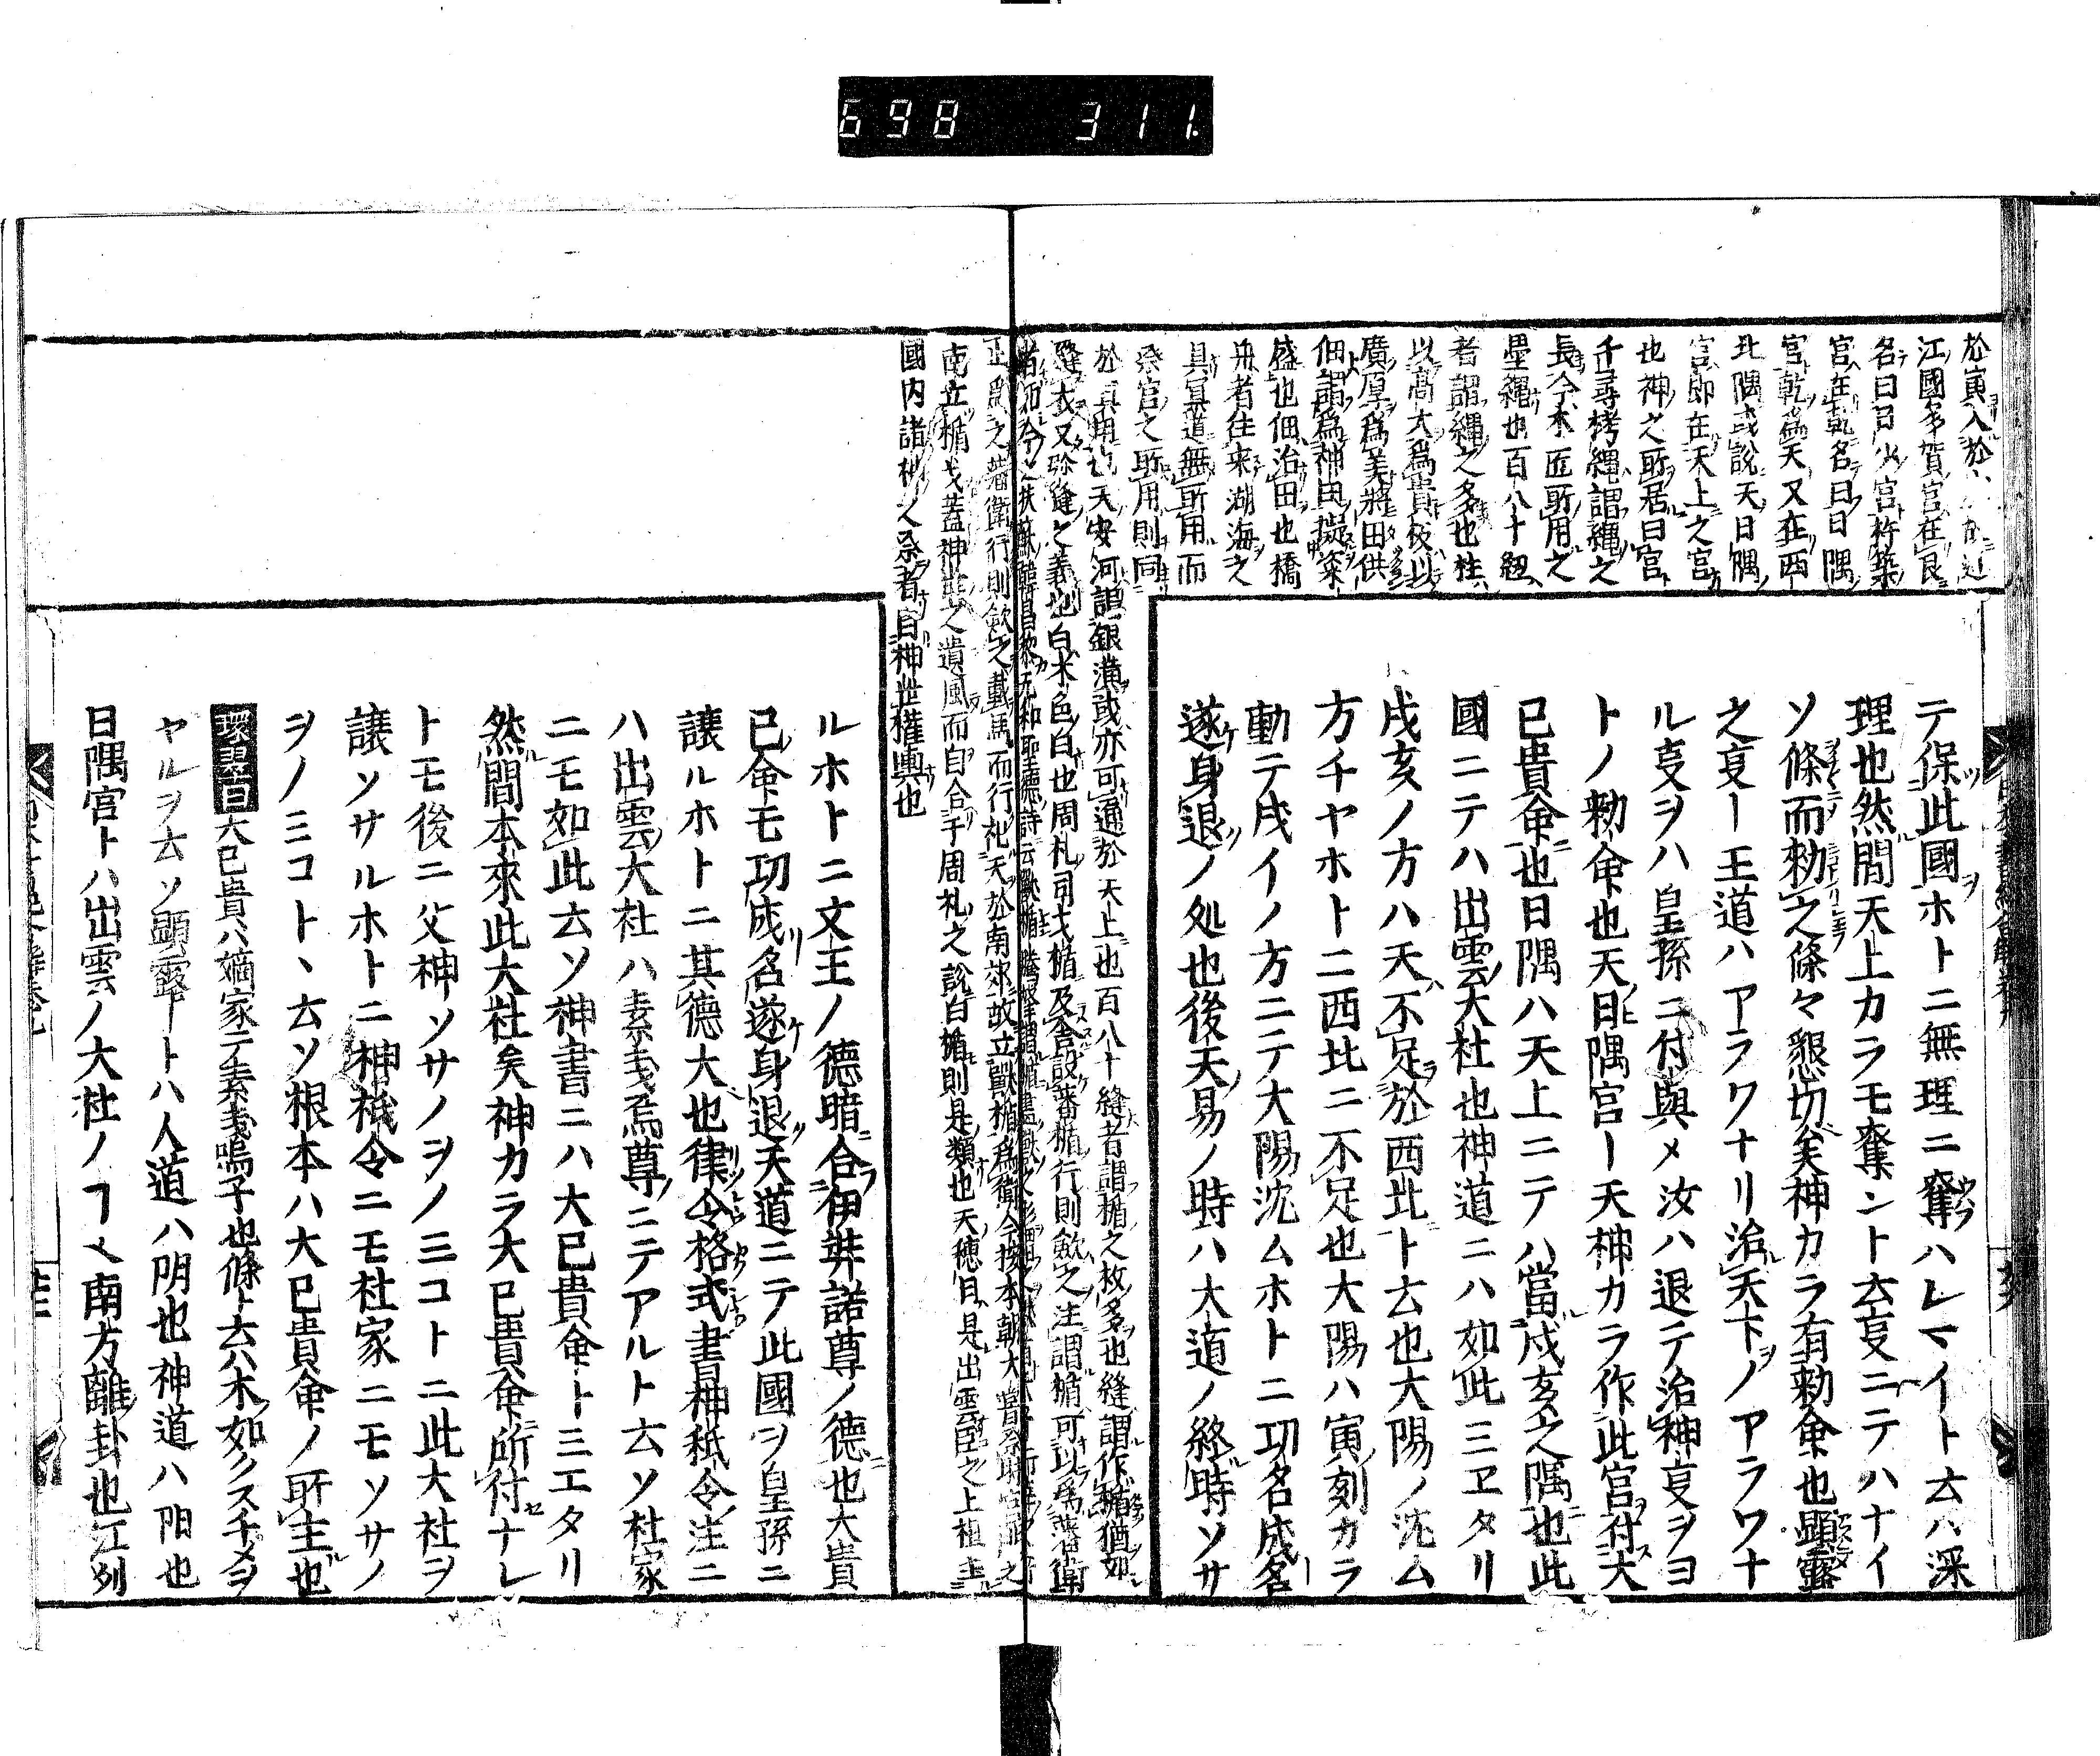 698 311.
於寅入於
江國多賀宮在艮
名曰日少宮杵築
宮在乾名曰日隅
宮乾為天又在西
北隅或說天日隅
宮即在天上之宮
也神之所居曰宮
千尋栲縄謂縄之
長今木匠所用之
墨縄也百八十紐
者謂縄之多也柱
以高大為貴板以
廣厚為美將田供
佃謂為神田擬粢
盛也佃治田也橋
舟者往来湖海之
具冥道無所用而
祭官之所用則同
於真用也天安河謂銀漢或亦可通於天上也百八十縫者謂楯之枚多也縫謂作楯猶如
縫衣又弥縫之義也白木色白也周礼司戈楯及舍設藩楯行則歛之注謂楯可以為藩衛
正為之藩衛行則歛之載馬而行礼天於南郊故立獸楯為衛今按本朝大嘗祭時宮門之
南立楯戈蓋神世之遺風而自合于周礼之說白楯則是類也天穂日是出雲臣之上祖主
國内諸神之祭者官神世權輿也
テ保此國ホトニ無理ニ奪ハレマイト云ハ深
理也然間天上カラモ奪ント云叓ニテハナイ
ソ條而勅之條々懇切矣神カラ有勅命也顕露
之叓ー王道ハアラワナリ治天下ノアラワナ
ル叓ヲハ皇孫ニ付與メ汝ハ退テ治神叓ヲヨ
トノ勅命也天日隅宮ー天神カラ作此宮付大
已貴命也日隅ハ天上ニテハ當戌亥之隅也此
國ニテハ出雲大社也神道ニハ如此三ヱタリ
戌亥ノ方ハ天不足於西北ト云也大陽ノ沈ム
方チヤホトニ西北ニ不足也大陽ハ寅刻カラ
動テ戌イノ方ニテ大陽沈ムホトニ功名成名
遂身退ノ処也後天易ノ時ハ大道ノ終時ソサ
ルホトニ文王ノ德暗合伊弉諾尊ノ德也大貴
已命モ功成名遂身退天道ニテ此國ヲ皇孫ニ
讓ルホトニ其德大也律令格式書神祇令注ニ
ハ出雲大社ハ素戔烏尊ニテアルト云ソ社家
ニモ如此云ソ神書ニハ大已貴命ト三エタリ
然間本來此大社矣神カラ大已貴命所付ナレ
トモ後ニ父神ソサノヲノ三コトニ此大社ヲ
讓ソサルホトニ神祇令ニモ社家ニモソサノ
ヲノ三コトヽ云ソ根本ハ大已貴命ノ所主也
環翠曰大已貴ハ嫡家テ素戔嗚子也條ト云ハ木如クスチメヲ
ヤルヲ云ソ顕露ートハ人道ハ阴也神道ハ阳也
日隅宮トハ出雲ノ大社ノヿ乀南方離卦也江列